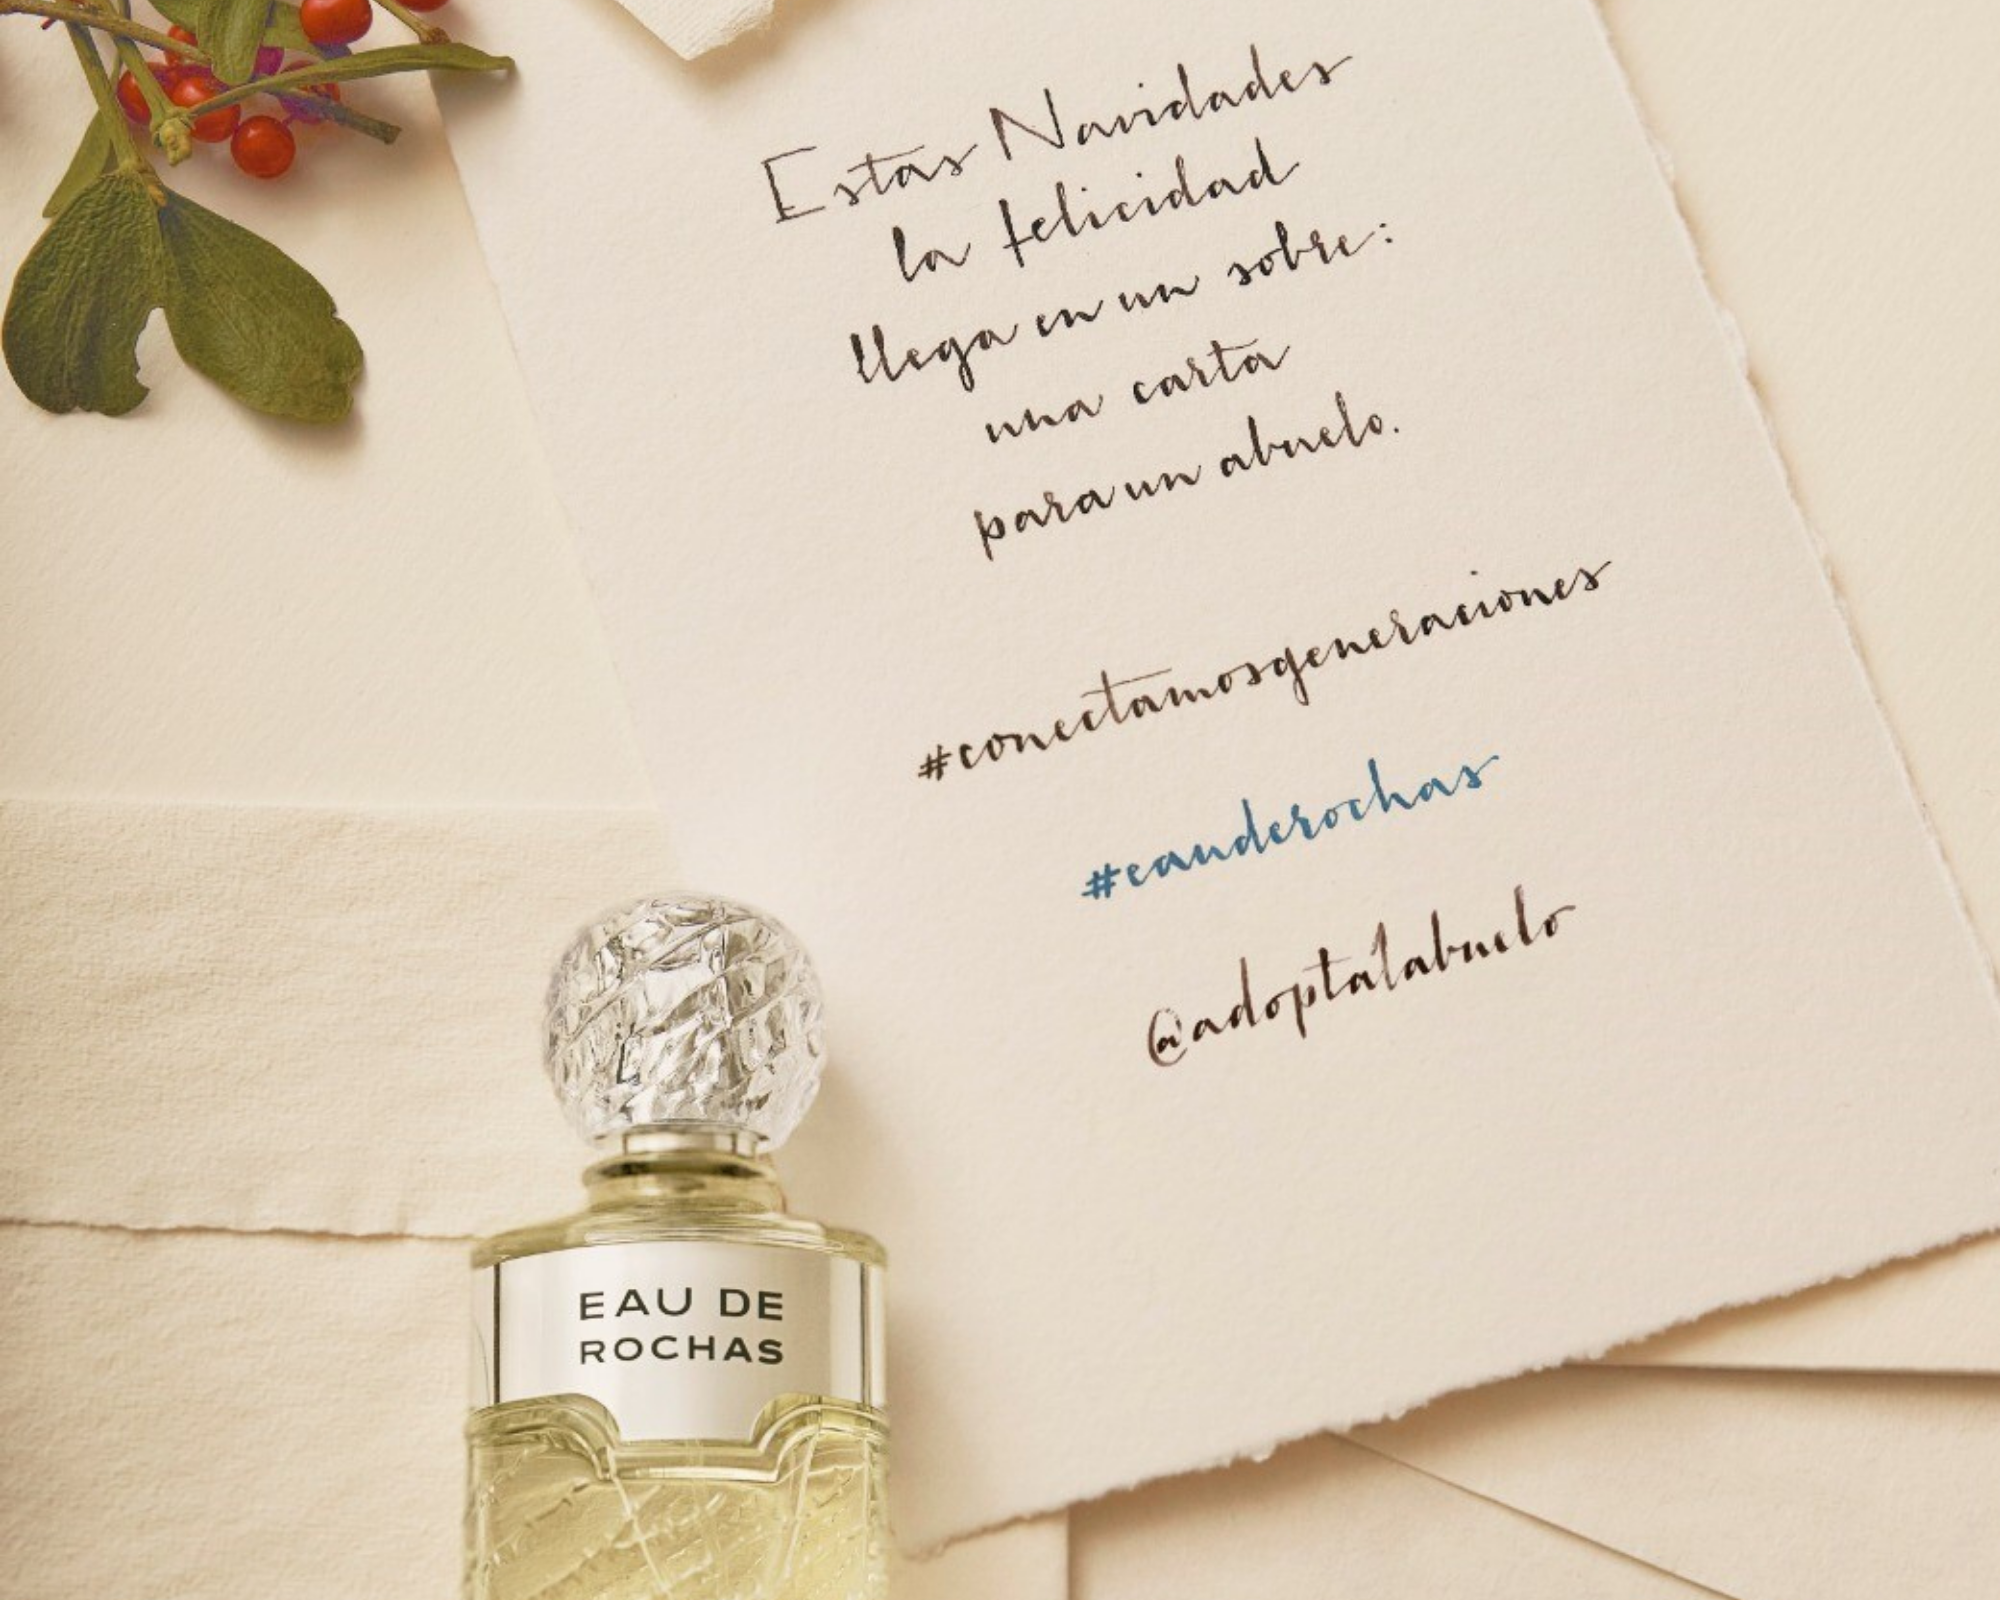 Estas Navidades
la felicidad
llega en un sobre:
una carta
para un abuelo.
#conectamosgeneraciones
#eauderochas
@adopta1abuelo
EAU DE
ROCHAS